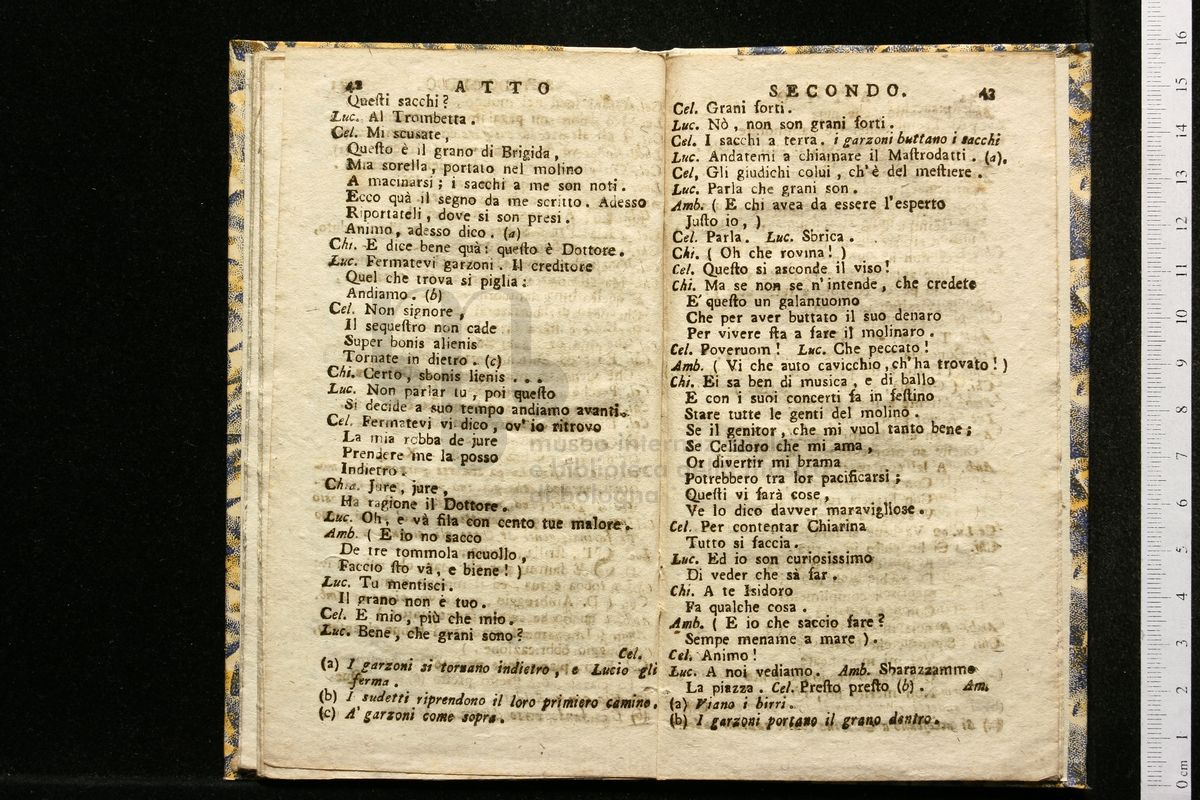 42 ATTO
Queſti sacchi?
Luc. Al Trombetta.
Cel. Mi scusate,
Queſto è il grano di Brigida,
Mia sorella, portato nel molino
A macinarsi; i sacchi a me son noti.
Ecco quà il segno da me scritto. Adesso
Riportateli, dove si son presi.
Animo, adesso dico. (a)
Chi. E dice bene quà: queſto è Dottore.
Luc. Fermatevi garzoni. Il creditore
Quel che trova si piglia:
Andiamo. (b)
Cel. Non signore,
Il sequeſtro non cade
Super bonis alienis
Tornate in dietro. (c)
Chi. Certo, sbonis lienis . . .
Luc. Non parlar tu, poi queſto
Si decide a suo tempo andiamo avanti.
Cel. Fermatevi vi dico, ov' io ritrovo
La mia robba de jure
Prendere me la posso
Indietro.
Chia. Jure, jure,
Ha ragione il Dottore.
Luc. Oh, e và fila con cento tue malore.
Amb. ( E io no sacco
De tre tommola ncuollo,
Faccio ſto và, e biene! )
Luc. Tu mentisci.
Il grano non è tuo.
Cel. E mio, più che mio.
Luc. Bene, che grani sono?
Cel.
(a) I garzoni si tornano indietro, e Lucio gli
ferma.
(b) I sudetti riprendono il loro primiero camino.
(c) A' garzoni come sopra.
SECONDO. 43
Cel. Grani forti.
Luc. Nò, non son grani forti.
Cel. I sacchi a terra. i garzoni buttano i sacchi
Luc. Andatemi a chiamare il Maſtrodatti. (a).
Cel, Gli giudichi colui, ch'è del meſtiere.
Luc. Parla che grani son.
Amb. ( E chi avea da essere l'esperto
Juſto io, )
Cel. Parla. Luc. Sbrica.
Chi. ( Oh che rovina! )
Cel. Queſto si asconde il viso!
Chi. Ma se non se n'intende, che credete
E' queſto un galantuomo
Che per aver buttato il suo denaro
Per vivere ſta a fare il molinaro.
Cel. Poveruom! Luc. Che peccato!
Amb. ( Vi che auto cavicchio, ch'ha trovato! )
Chi. Ei sa ben di musica, e di ballo
E con i suoi concerti fa in feſtino
Stare tutte le genti del molino.
Se il genitor, che mi vuol tanto bene;
Se Celidoro che mi ama,
Or divertir mi brama
Potrebbero tra lor pacificarsi;
Queſti vi farà cose,
Ve lo dico davver maravigliose.
Cel. Per contentar Chiarina
Tutto si faccia.
Luc. Ed io son curiosissimo
Di veder che sà far.
Chi. A te Isidoro
Fa qualche cosa.
Amb. ( E io che saccio fare?
Sempe mename a mare ).
Cel. Animo!
Luc. A noi vediamo. Amb. Sbarazzamme
La piazza. Cel. Preſto preſto (b). Am.
(a) Viano i birri.
(b) I garzoni portano il grano dentro.
museo
e biblioteca
di bologna
0 cm 1 2 3 4 5 6 7 8 9 10 11 12 13 14 15 16